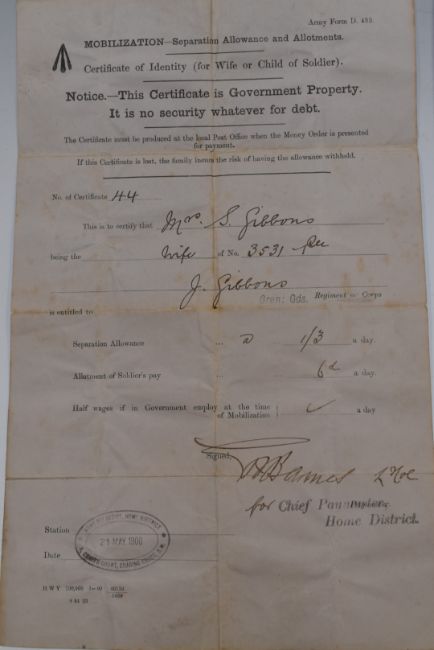 Army Form D. 483.
MOBILIZATION—Separation Allowance and Allotments.
Certificate of Identity (for Wife or Child of Soldier).
Notice.—This Certificate is Government Property.
It is no security whatever for debt.
The Certificate must be produced at the local Post Office when the Money Order is presented
for payment.
If this Certificate is lost, the family incurs the risk of having the allowance withheld.
No. of Certificate 44
This is to certify that Mrs. S. Gibbons
being the Wife of No. 3531
J. Gibbons
Gren: Gds. Regiment or Corps
is entitled to
Separation Allowance ... 1/3 a day.
Allotment of Soldier's pay ... 6d a day.
Half wages if in Government employ at the time
of Mobilization a day
Signed,
for Chief Paymaster,
Home District.
Station
21 MAY 1900
CHARING CROSS
Date